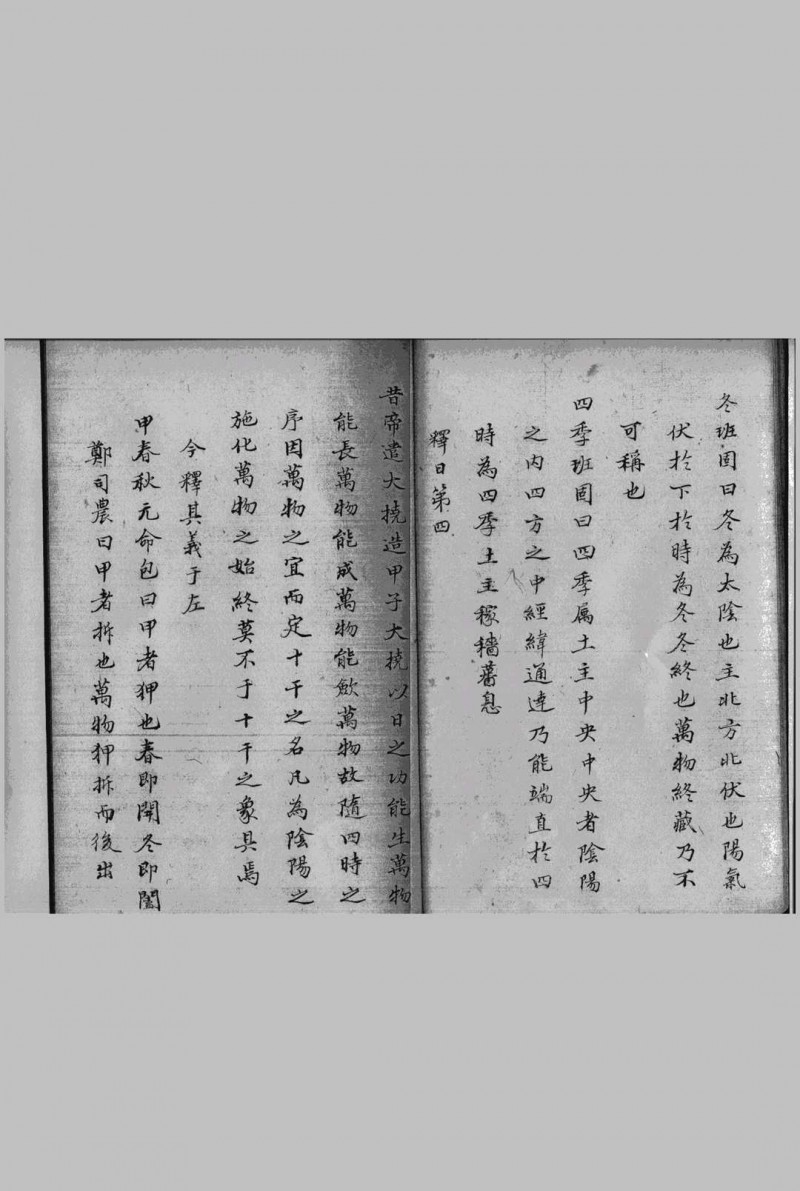 冬班固曰冬為太陰也主北方北伏也陽氣
伏於下於時為冬冬終也萬物終藏乃不
可稱也
四季班固曰四季属土主中央中央者陰陽
之内四方之中經緯通達乃能端直於四
時為四季土主稼穡蕃息
釋日第四
昔帝遣大撓造甲子大撓以日之功能生萬物
能長萬物能成萬物能斂萬物故隨四時之
序因萬物之宜而定十干之名凡為陰陽之
施化萬物之始終莫不于十干之象具焉
今釋其義于左
甲春秋元命包曰甲者狎也春即開冬即闔
鄭司農曰甲者拆也萬物狎拆而後出